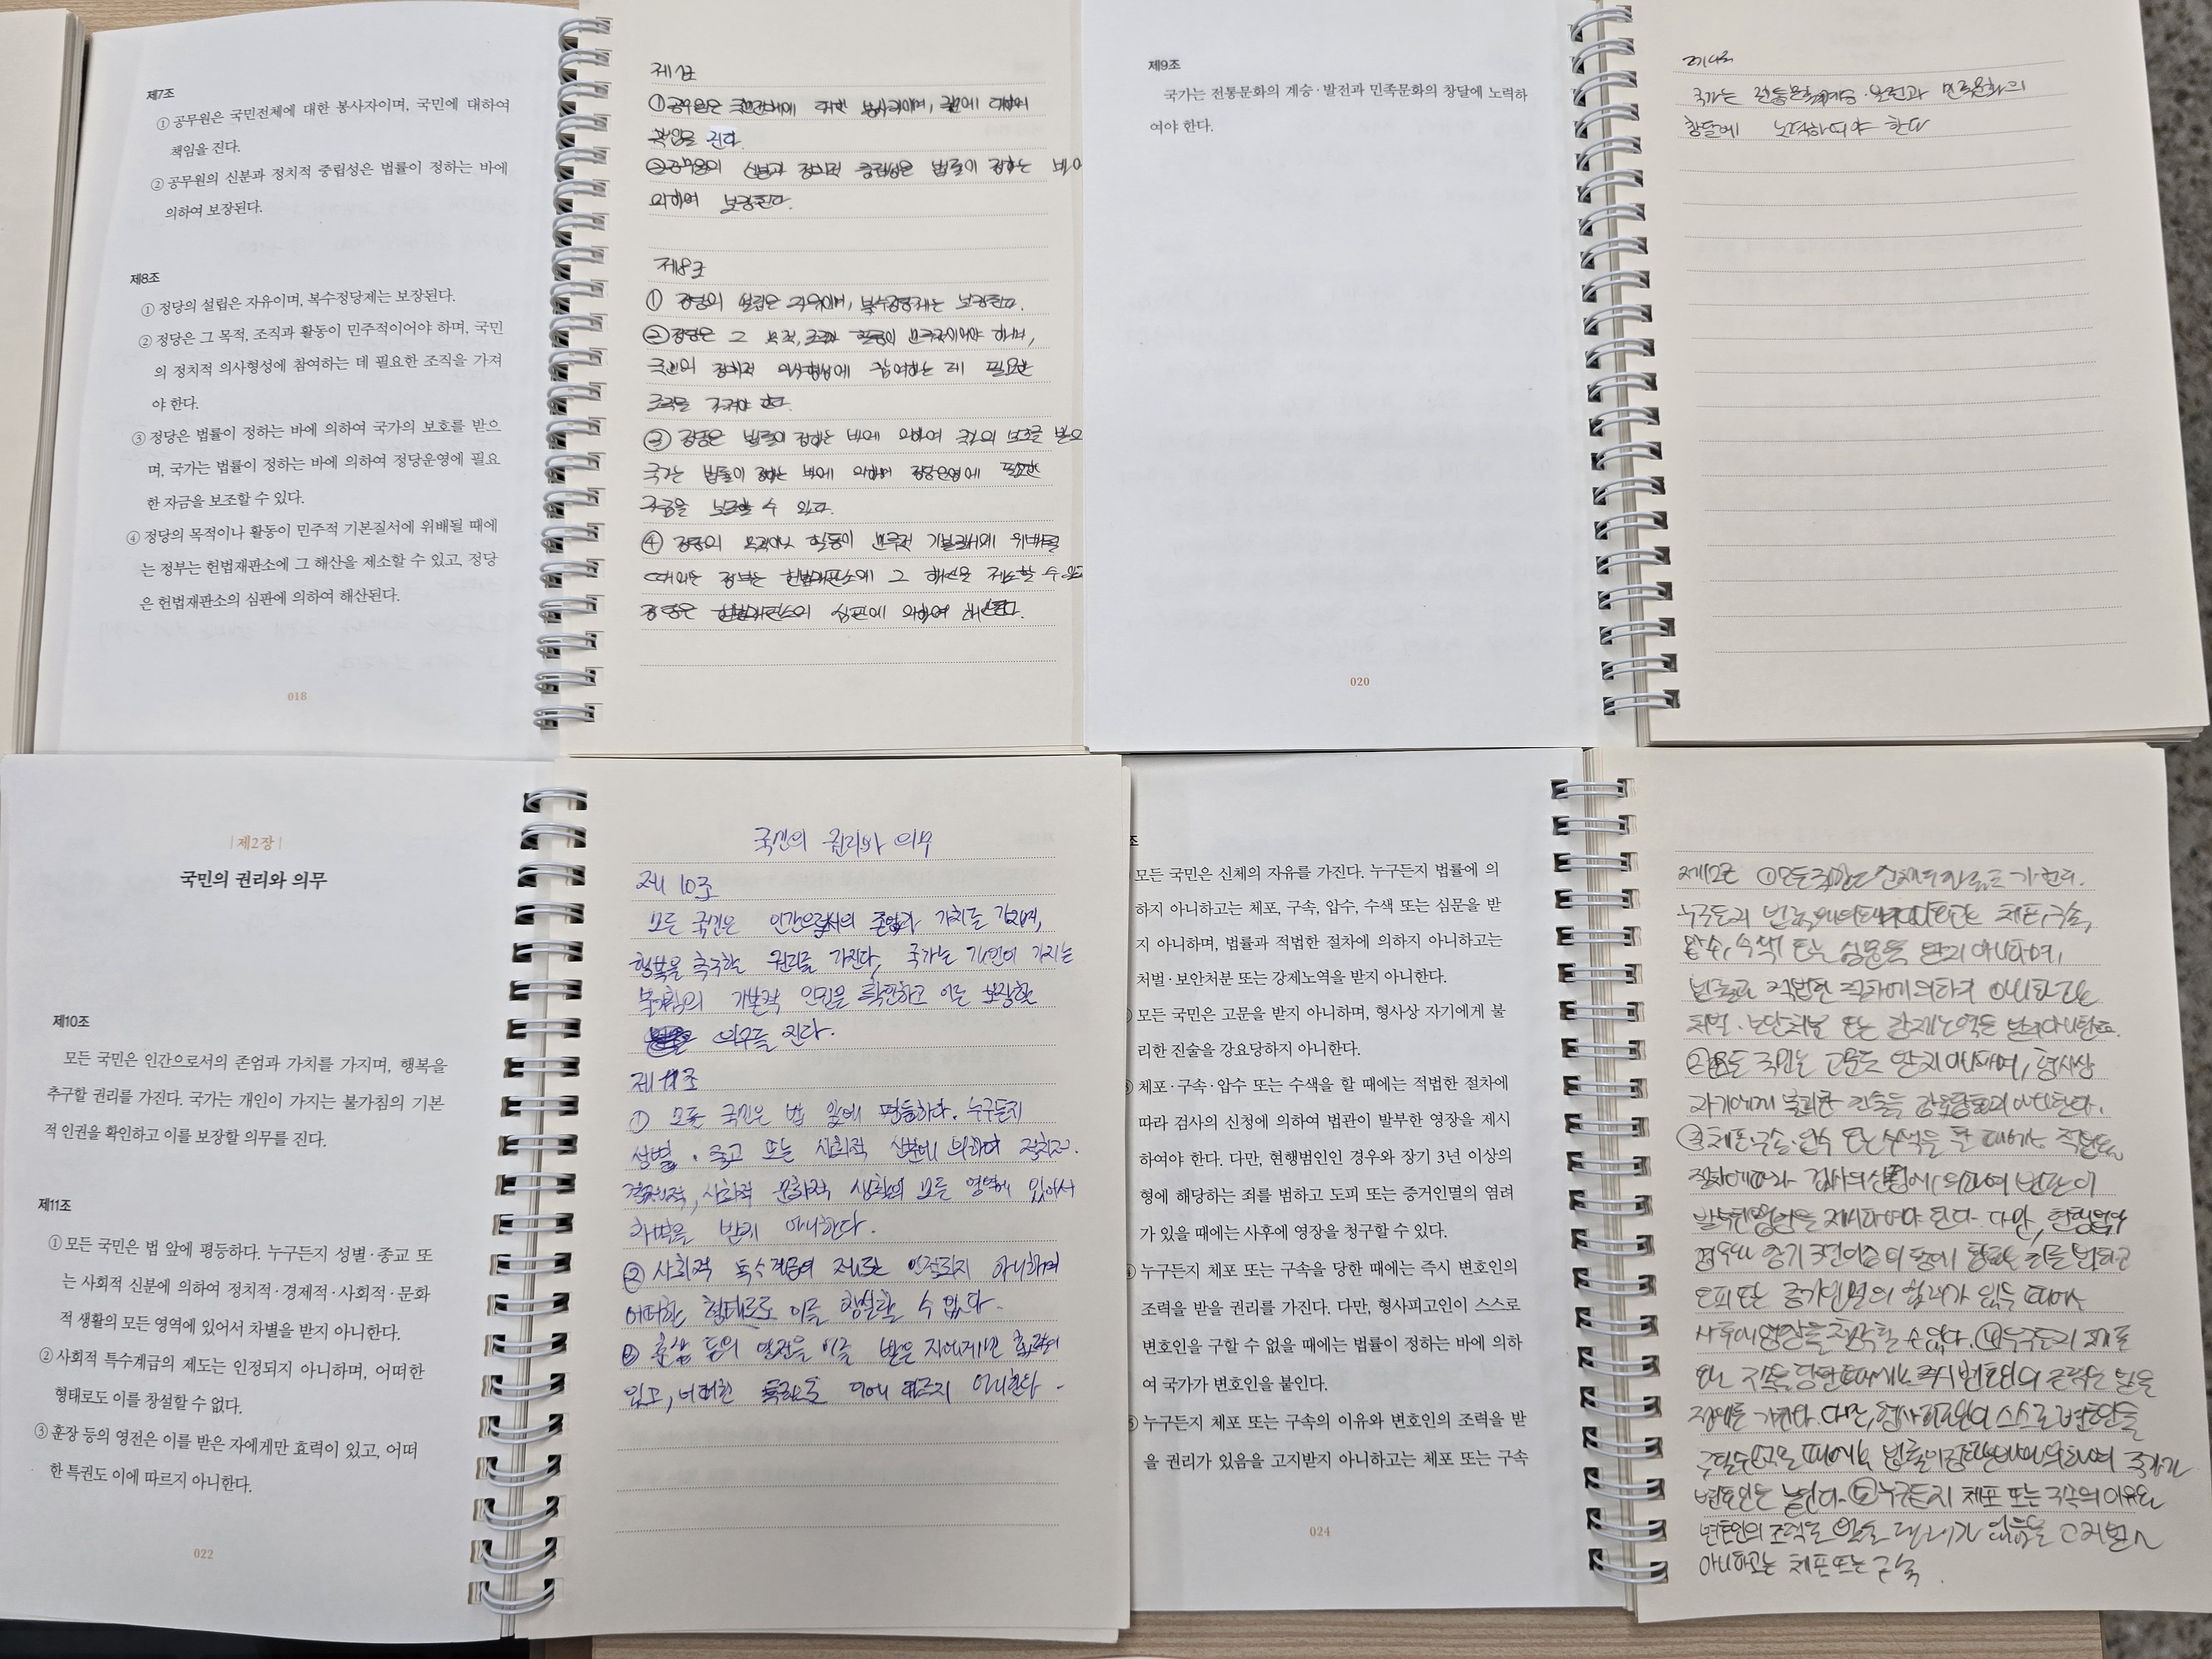 제7조
① 공무원은 국민전체에 대한 봉사자이며, 국민에 대하여
책임을 진다.
② 공무원의 신분과 정치적 중립성은 법률이 정하는 바에
의하여 보장된다.
제8조
① 정당의 설립은 자유이며, 복수정당제는 보장된다.
② 정당은 그 목적, 조직과 활동이 민주적이어야 하며, 국민
의 정치적 의사형성에 참여하는 데 필요한 조직을 가져
야 한다.
③ 정당은 법률이 정하는 바에 의하여 국가의 보호를 받으
며, 국가는 법률이 정하는 바에 의하여 정당운영에 필요
한 자금을 보조할 수 있다.
④ 정당의 목적이나 활동이 민주적 기본질서에 위배될 때에
는 정부는 헌법재판소에 그 해산을 제소할 수 있고, 정당
은 헌법재판소의 심판에 의하여 해산된다.
018
① 공무원은 대한 봉사자이며,
책임을 진다.
② 공무원의 정치적 중립성은 법률이 정하는
의하여 보장된다.
제8조
① 정당의 설립은 자유이며, 복수정당제는
② 정당은 그 목적, 하며,
국민의 정치적 의사형성에 참여하는 데 필요한
조직을 가져야 한다.
③ 정당은 법률이 정하는 바에 의하여 국가의
국가는 법률이 정하는 바에 의하여 정당운영에 필요한
자금을 보조할 수 있다.
④ 정당의 목적이나 활동이 민주적
정부는 헌법재판소에 그 해산을 제소할 수
정당은 헌법재판소의 심판에 의하여
제9조
국가는 전통문화의 계승·발전과 민족문화의 창달에 노력하
여야 한다.
020
국가는 발전과 민족문화의
창달에 노력하여야 한다
|제2장|
국민의 권리와 의무
제10조
모든 국민은 인간으로서의 존엄과 가치를 가지며, 행복을
추구할 권리를 가진다. 국가는 개인이 가지는 불가침의 기본
적 인권을 확인하고 이를 보장할 의무를 진다.
제11조
① 모든 국민은 법 앞에 평등하다. 누구든지 성별·종교 또
는 사회적 신분에 의하여 정치적·경제적·사회적·문화
적 생활의 모든 영역에 있어서 차별을 받지 아니한다.
② 사회적 특수계급의 제도는 인정되지 아니하며, 어떠한
형태로도 이를 창설할 수 없다.
③ 훈장 등의 영전은 이를 받은 자에게만 효력이 있고, 어떠
한 특권도 이에 따르지 아니한다.
022
국민의 권리와 의무
제 10조
모든 국민은 인간으로서의 존엄과 가치를 가지며,
행복을 추구할 권리를 가진다, 국가는 개인이 가지는
불가침의 확인하고 이를 보장할
진다.
제 11조
① 모든 국민은 법 앞에 평등하다. 누구든지
성별 · 종교 또는 사회적 신분에 의하여
사회적 문화적 생활의 모든 영역에 있어서
받지 아니한다.
② 사회적 특수계급의 제도는 인정되지 아니하며
어떠한 형태로도 이를 수 없다.
등의 영전은 이를 받은 자에게만
있고, 어떠한 이에 아니한다.
조
모든 국민은 신체의 자유를 가진다. 누구든지 법률에 의
하지 아니하고는 체포, 구속, 압수, 수색 또는 심문을 받
지 아니하며, 법률과 적법한 절차에 의하지 아니하고는
처벌·보안처분 또는 강제노역을 받지 아니한다.
모든 국민은 고문을 받지 아니하며, 형사상 자기에게 불
리한 진술을 강요당하지 아니한다.
체포·구속·압수 또는 수색을 할 때에는 적법한 절차에
따라 검사의 신청에 의하여 법관이 발부한 영장을 제시
하여야 한다. 다만, 현행범인인 경우와 장기 3년 이상의
형에 해당하는 죄를 범하고 도피 또는 증거인멸의 염려
가 있을 때에는 사후에 영장을 청구할 수 있다.
누구든지 체포 또는 구속을 당한 때에는 즉시 변호인의
조력을 받을 권리를 가진다. 다만, 형사피고인이 스스로
변호인을 구할 수 없을 때에는 법률이 정하는 바에 의하
여 국가가 변호인을 붙인다.
누구든지 체포 또는 구속의 이유와 변호인의 조력을 받
을 권리가 있음을 고지받지 아니하고는 체포 또는 구속
024
제12조 ①
누구든지 체포, 구속,
압수, 수색 또는 심문을 받지 아니하며,
적법한 절차에 의하지 아니하고는
처벌 · 또는
국민은 고문을 받지 아니하며, 형사상
자기에게 불리한 진술을
③ 체포·구속·압수 또는 수색을 할 때에는
의하여 법관이
제시하여야 한다. 다만,
장기 3년이상의 형에 죄를 범하고
도피 또는 증거인멸의
사후에 영장을 ④ 누구든지
또는 변호인의 조력을 받을
스스로 변호인을
때에는 국가가
변호인을 ⑤ 누구든지 체포 또는 구속의 이유와
변호인의 조력을
아니하고는 체포 또는 구속